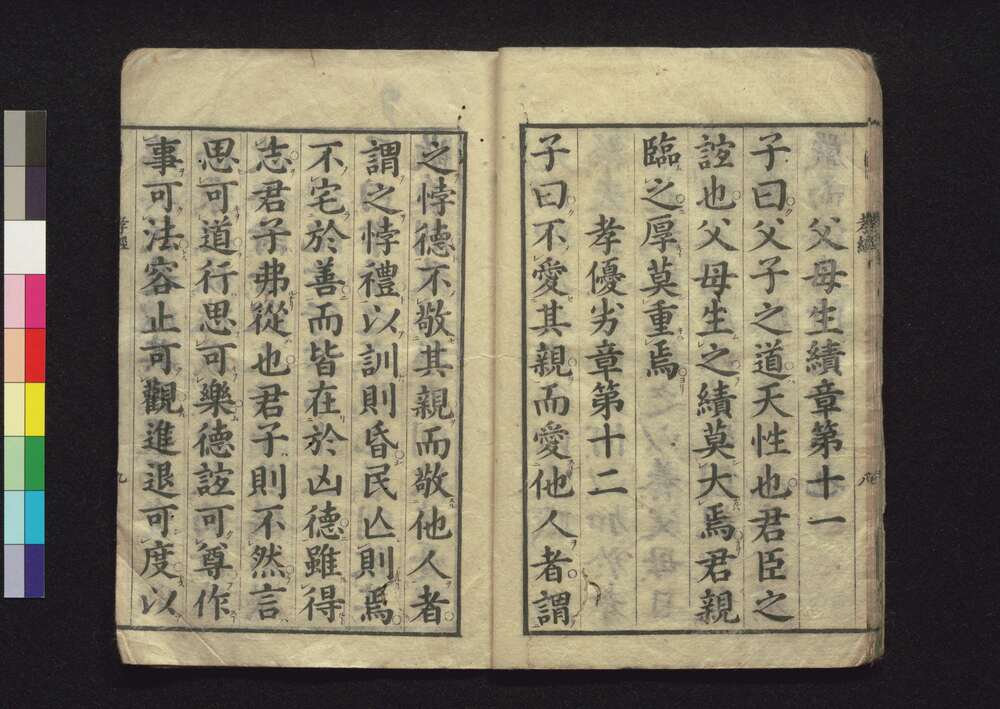 父母生績章第十一
子曰父子之道天性也君臣之
誼也父母生之績莫大焉君親
臨之厚莫重焉
孝優劣章第十二
子曰不愛其親而愛他人者謂
之悖德不敬其親而敬他人者
謂之悖禮以訓則昏民亾則焉
不宅於善而皆在於凶德雖得
志君子弗從也君子則不然言
思可道行思可樂德誼可尊作
事可法容止可觀進退可度以
孝經
八
孝經
九